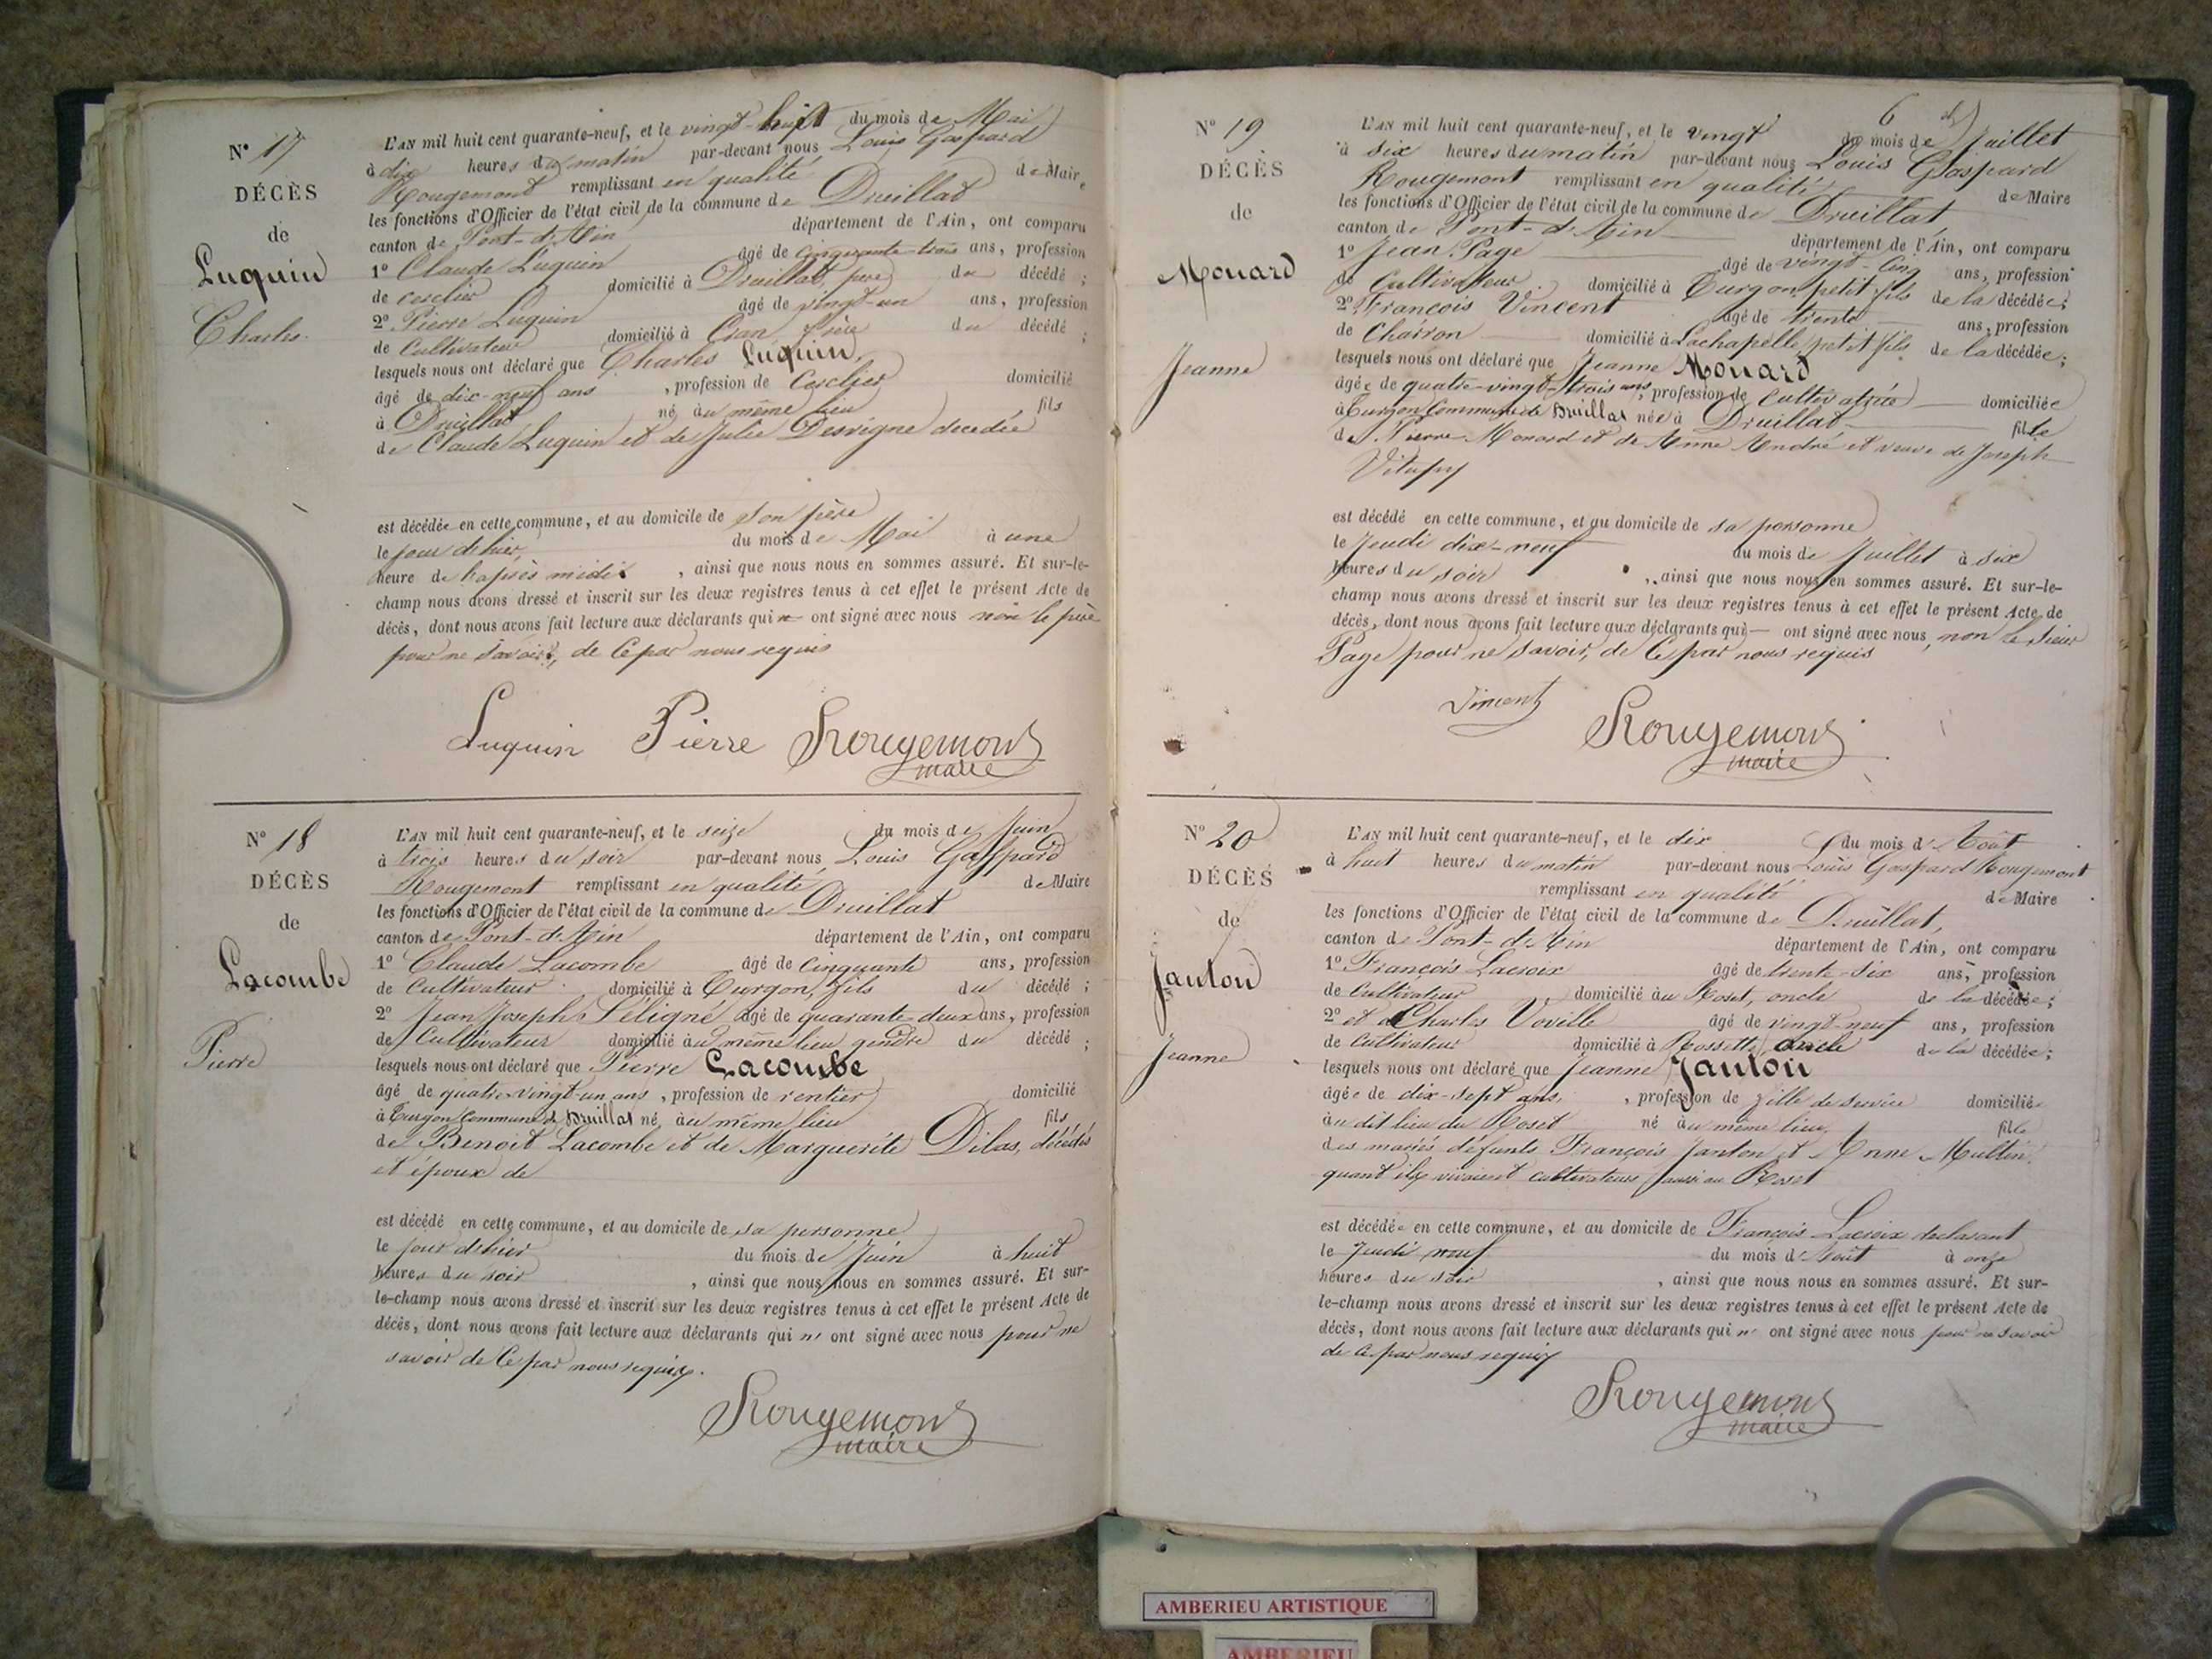 N° 17
DÉCÈS
de
Luquin
Charles
L'AN mil huit cent quarante-neuf, et le vingt-huit du mois de Mai
à dix heures du matin par-devant nous Louis Gaspard
Rougemont remplissant en qualité de Maire
les fonctions d'Officier de l'état civil de la commune de Druillat
canton de Pont-d'Ain département de l'Ain, ont comparu
1° Claude Luquin âgé de cinquante-trois ans, profession
de cerclier domicilié à Druillat, père du décédé ;
2° Pierre Luquin âgé de vingt-un ans, profession
de Cultivateur domicilié à Cran frère du décédé ;
lesquels nous ont déclaré que Charles Luquin,
âgé de dix-neuf ans , profession de Cerclier domicilié
à Druillat né au même lieu fils
de Claude Luquin et de Julie Desvigne decedée
est décédée en cette commune, et au domicile de son père
le jour d'hier, du mois de Mai à une
heure de l'après midi , ainsi que nous nous en sommes assuré. Et sur-le-
champ nous avons dressé et inscrit sur les deux registres tenus à cet effet le présent Acte de
décès, dont nous avons fait lecture aux déclarants qui ont signé avec nous non le père
pour ne savoir, de ce par nous requis
Luquin Pierre Rougemont
maire
N° 18
DÉCÈS
de
Lacombe
Pierre
L'AN mil huit cent quarante-neuf, et le seize du mois de Juin
à trois heures du soir par-devant nous Louis Gaspard
Rougemont remplissant en qualité de Maire
les fonctions d'Officier de l'état civil de la commune de Druillat
canton de Pont-d'Ain département de l'Ain, ont comparu
1° Claude Lacombe âgé de Cinquante ans, profession
de Cultivateur domicilié à Turgon, fils du décédé ;
2° Jean Joseph Féligné âgé de quarante-deux ans, profession
de Cultivateur domicilié au même lieu gendre du décédé ;
lesquels nous ont déclaré que Pierre Lacombe
âgé de quatre-vingt-un ans , profession de rentier domicilié
à Turgon Commune de Druillat né au même lieu fils
de Benoit Lacombe et de Marguerite Dilas, décédés
et époux de
est décédé en cette commune, et au domicile de sa personne
le jour d'hier du mois de Juin à huit
heures du soir , ainsi que nous nous en sommes assuré. Et sur-
le-champ nous avons dressé et inscrit sur les deux registres tenus à cet effet le présent Acte de
décès, dont nous avons fait lecture aux déclarants qui n' ont signé avec nous pour ne
savoir de ce par nous requis.
Rougemont
maire
6
N° 19
DÉCÈS
de
Monard
Jeanne
L'AN mil huit cent quarante-neuf, et le vingt du mois de Juillet
à six heures du matin par-devant nous Louis Gaspard
Rougemont remplissant en qualité de Maire
les fonctions d'Officier de l'état civil de la commune de Druillat
canton de Pont-d'Ain département de l'Ain, ont comparu
1° Jean Page âgé de vingt-cinq ans, profession
de Cultivateur domicilié à Turgon petit fils de la décédée ;
2° François Vincent âgé de trente ans, profession
de Charron domicilié à Lachapelle petit fils de la décédée ;
lesquels nous ont déclaré que Jeanne Monard
âgée de quatre-vingt-trois ans, profession de cultivatrice domiciliée
à Turgon Commune de Druillat née à Druillat fille
de Pierre Monard et de Anne André et veuve de Joseph
est décédé en cette commune, et au domicile de sa personne
le Jeudi dix-neuf du mois de Juillet à six
heures du soir , ainsi que nous nous en sommes assuré. Et sur-le-
champ nous avons dressé et inscrit sur les deux registres tenus à cet effet le présent Acte de
décès, dont nous avons fait lecture aux déclarants qui ont signé avec nous, non le Sieur
Page pour ne savoir, de ce par nous requis
Vincent Rougemont
maire
N° 20
DÉCÈS
de
Janton
Jeanne
L'AN mil huit cent quarante-neuf, et le dix du mois d'Août
à huit heures du matin par-devant nous Louis Gaspard Rougemont
remplissant en qualité de Maire
les fonctions d'Officier de l'état civil de la commune de Druillat,
canton de Pont-d'Ain département de l'Ain, ont comparu
1° François Lacroix âgé de trente-six ans, profession
de Cultivateur domicilié au Roset, oncle de la décédée ;
2° et Charles Voville âgé de vingt-neuf ans, profession
de Cultivateur domicilié à Rossette, oncle de la décédée ;
lesquels nous ont déclaré que Jeanne Janton
âgée de dix-sept ans, , profession de fille de service domiciliée
au dit lieu du Roset né au même lieu fille
des mariés défunts François Janton et Anne Multin
quant ils vivaient cultivateurs aussi au Roset
est décédée en cette commune, et au domicile de François Lacroix déclarant
le Jeudi neuf du mois d'Août à onze
heures du soir , ainsi que nous nous en sommes assuré. Et sur-
le-champ nous avons dressé et inscrit sur les deux registres tenus à cet effet le présent Acte de
décès, dont nous avons fait lecture aux déclarants qui n' ont signé avec nous pour ne savoir
de ce par nous requis
Rougemont
maire
AMBERIEU ARTISTIQUE
AMBERIEU